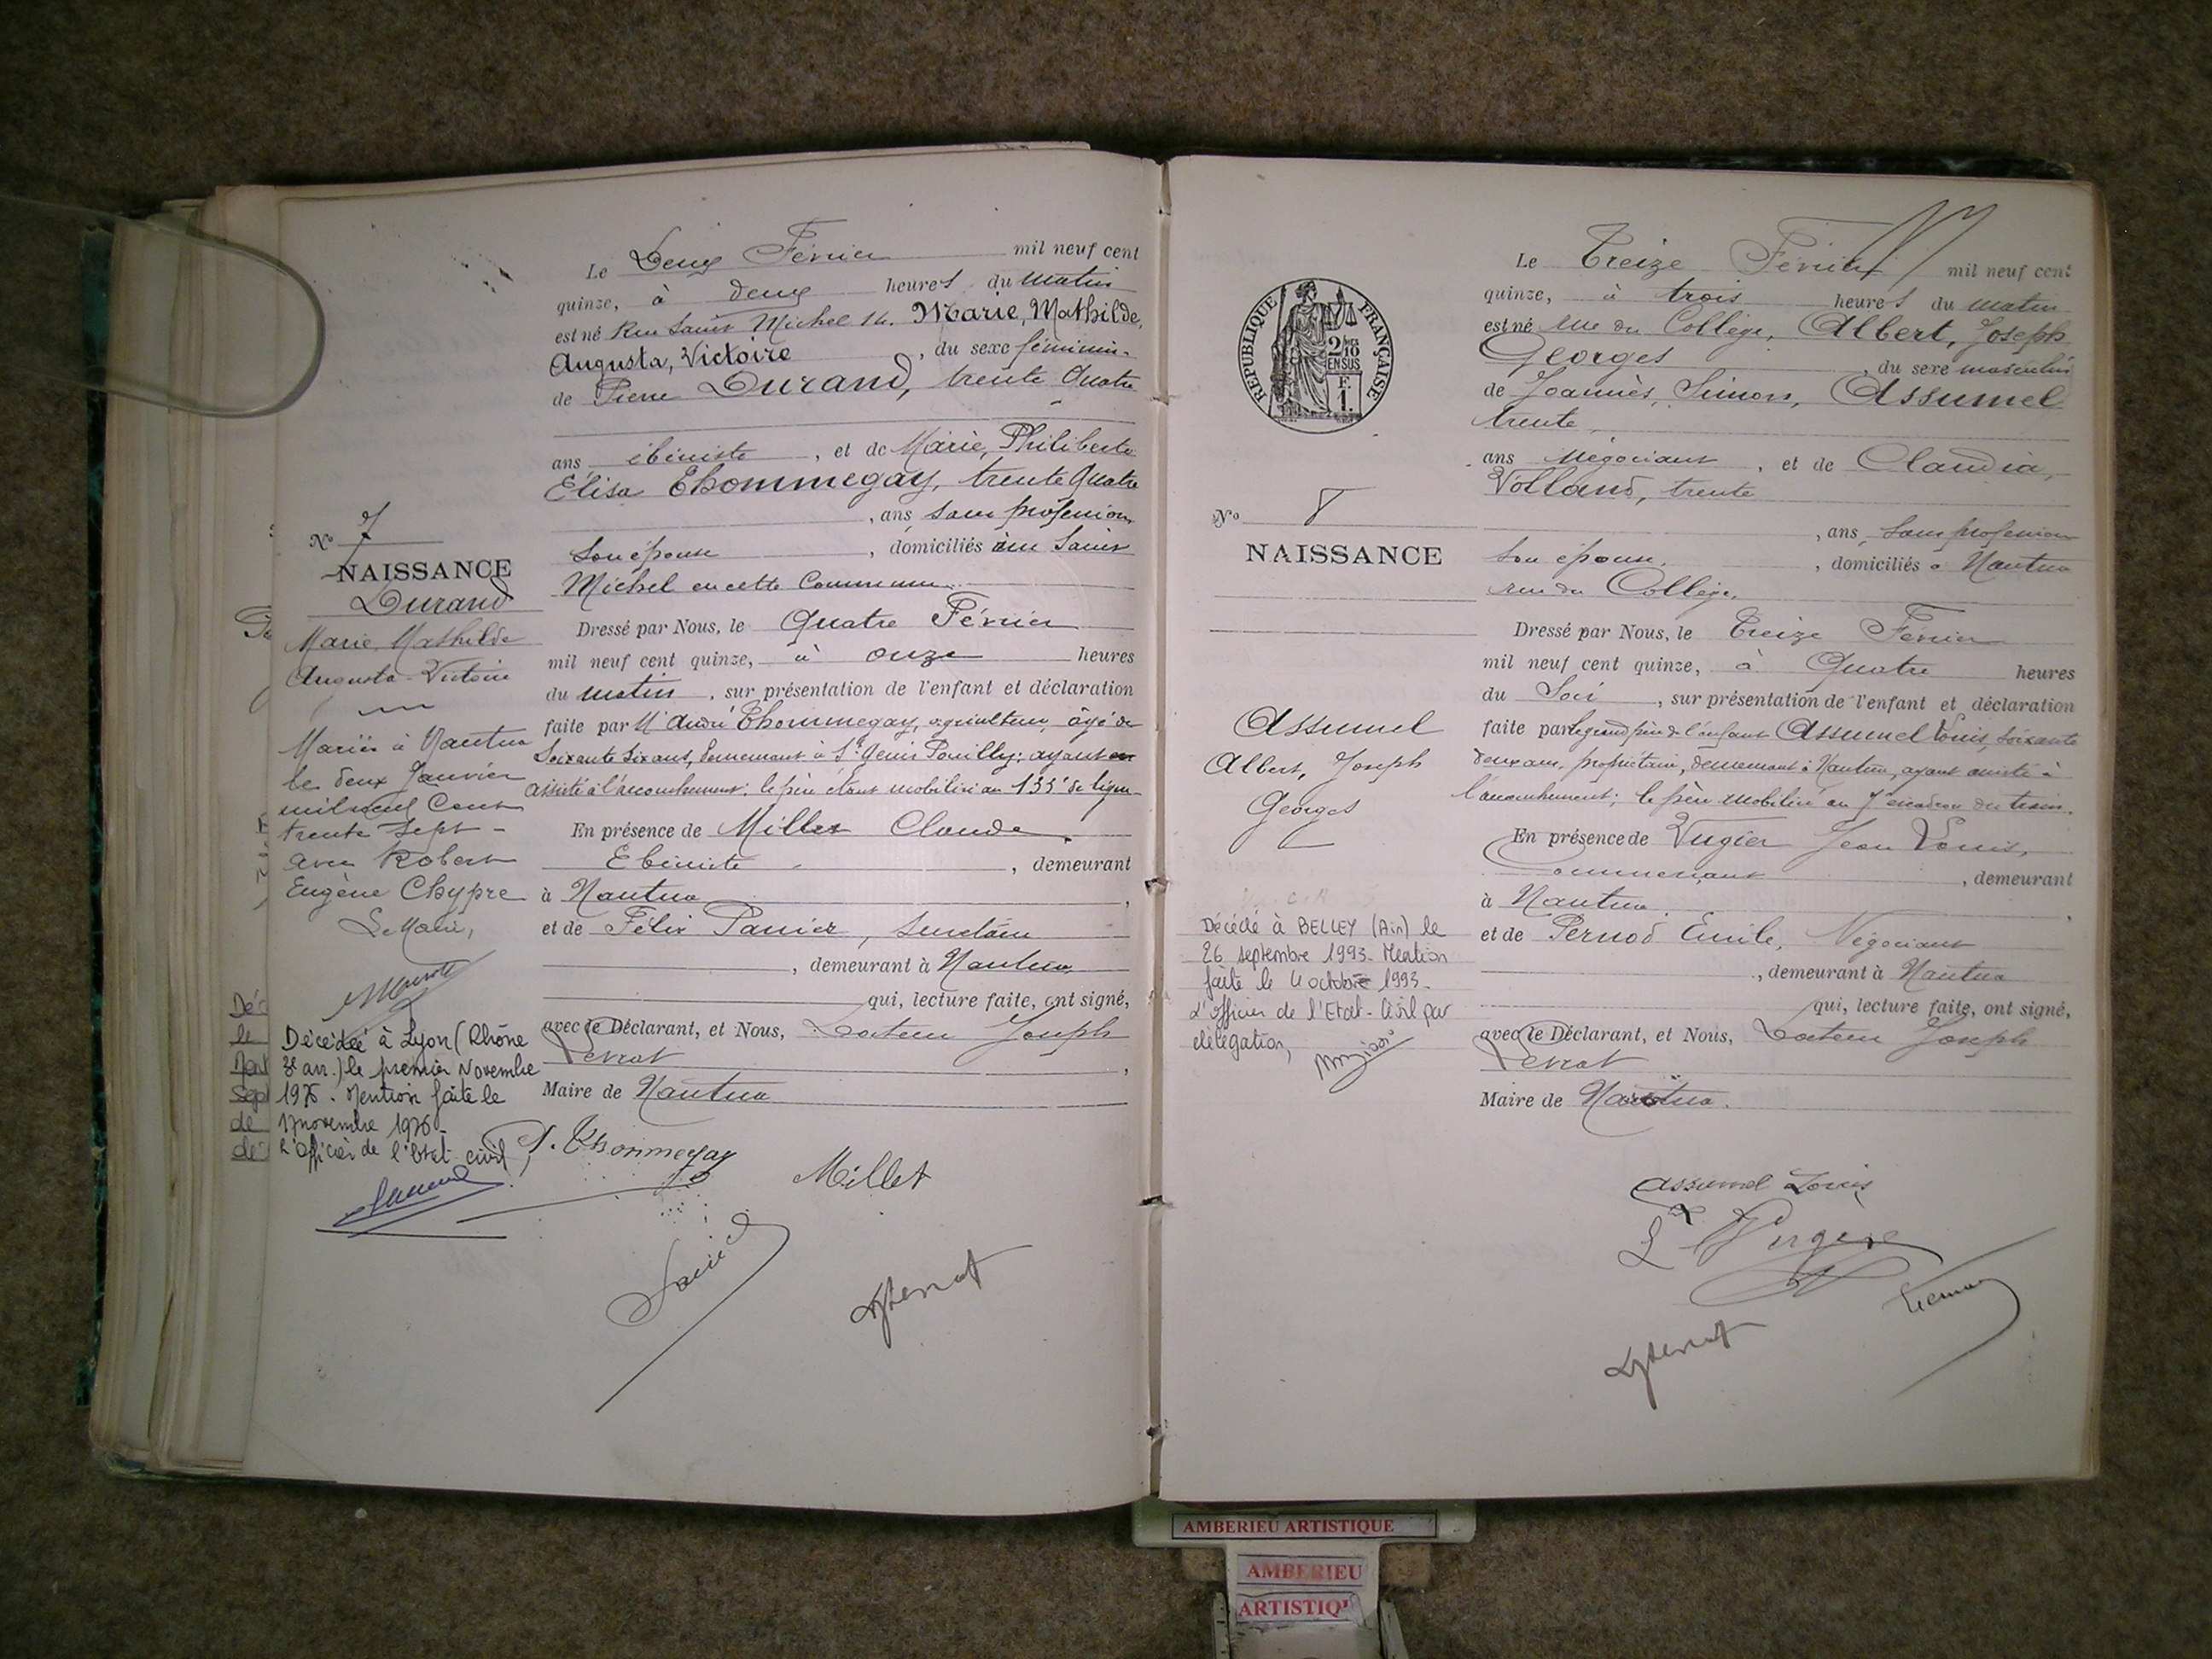 Le Deux Février mil neuf cent
quinze, à deux heures du matin
est né Rue Saint Michel 14. Marie, Mathilde,
Augusta, Victoire, du sexe féminin
de Pierre Durand, trente quatre
ans ébéniste, et de Marie, Philiberte
Élisa Thommegay, trente quatre
, ans, sans profession
Son épouse, domiciliés rue Saint
Michel en cette Commune
Dressé par Nous, le Quatre Février
mil neuf cent quinze, à onze heures
du matin, sur présentation de l'enfant et déclaration
faite par M. André Thommegay, agriculteur, âgé de
Soixante dix ans, demeurant à St Genis Pouilly; ayant
assisté à l'accouchement; le père étant mobilisé au 133e de ligne
En présence de Millet Claude
Ebéniste, demeurant
à Nantua,
et de Félix Panier,
, demeurant à Nantua
qui, lecture faite, ont signé,
avec le Déclarant, et Nous, Docteur Joseph
Maire de Nantua
No 7
NAISSANCE
Durand
Marie, Mathilde
Augusta-Victoire
Mariée à Nantua
le deux Janvier
mil neuf Cent
trente sept
avec Robert
Eugène Chypre
Le Maire,
Décédée à Lyon (Rhône
3e arr.) le premier Novembre
1976. Mention faite le
17 novembre 1976
L'officier de l'état civil,
Thommegay
Millet
Le Treize Février mil neuf cent
quinze, à trois heures du matin
est né rue du Collège, Albert, Joseph
Georges, du sexe masculin
de Joannès, Simon, Assumel
trente
ans négociant, et de Claudia,
Volland, trente
, ans, sans profession
son épouse, domiciliés à Nantua
rue du Collège,
Dressé par Nous, le Treize Février
mil neuf cent quinze, à Quatre heures
du Soir, sur présentation de l'enfant et déclaration
faite par le grand père de l'enfant Assumel Louis, soixante
deux ans, propriétaire, demeurant à Nantua, ayant assisté à
l'accouchement; le père mobilisé au 7e escadron du train.
En présence de Jean Louis,
Commerçant, demeurant
à Nantua,
et de Pernod Emile, Négociant
, demeurant à Nantua
qui, lecture faite, ont signé,
avec le Déclarant, et Nous, Docteur Joseph
Maire de Nantua.
RÉPUBLIQUE FRANÇAISE
2/10
EN SUS
F.
1.
No 8
NAISSANCE
Assumel
Albert, Joseph
Georges
Décédé à BELLEY (Ain) le
26 septembre 1993. Mention
faite le 4 octobre 1993.
L'officier de l'Etat-Civil par
délégation,
Assumel Louis
AMBERIEU ARTISTIQUE
AMBERIEU
ARTISTIQ